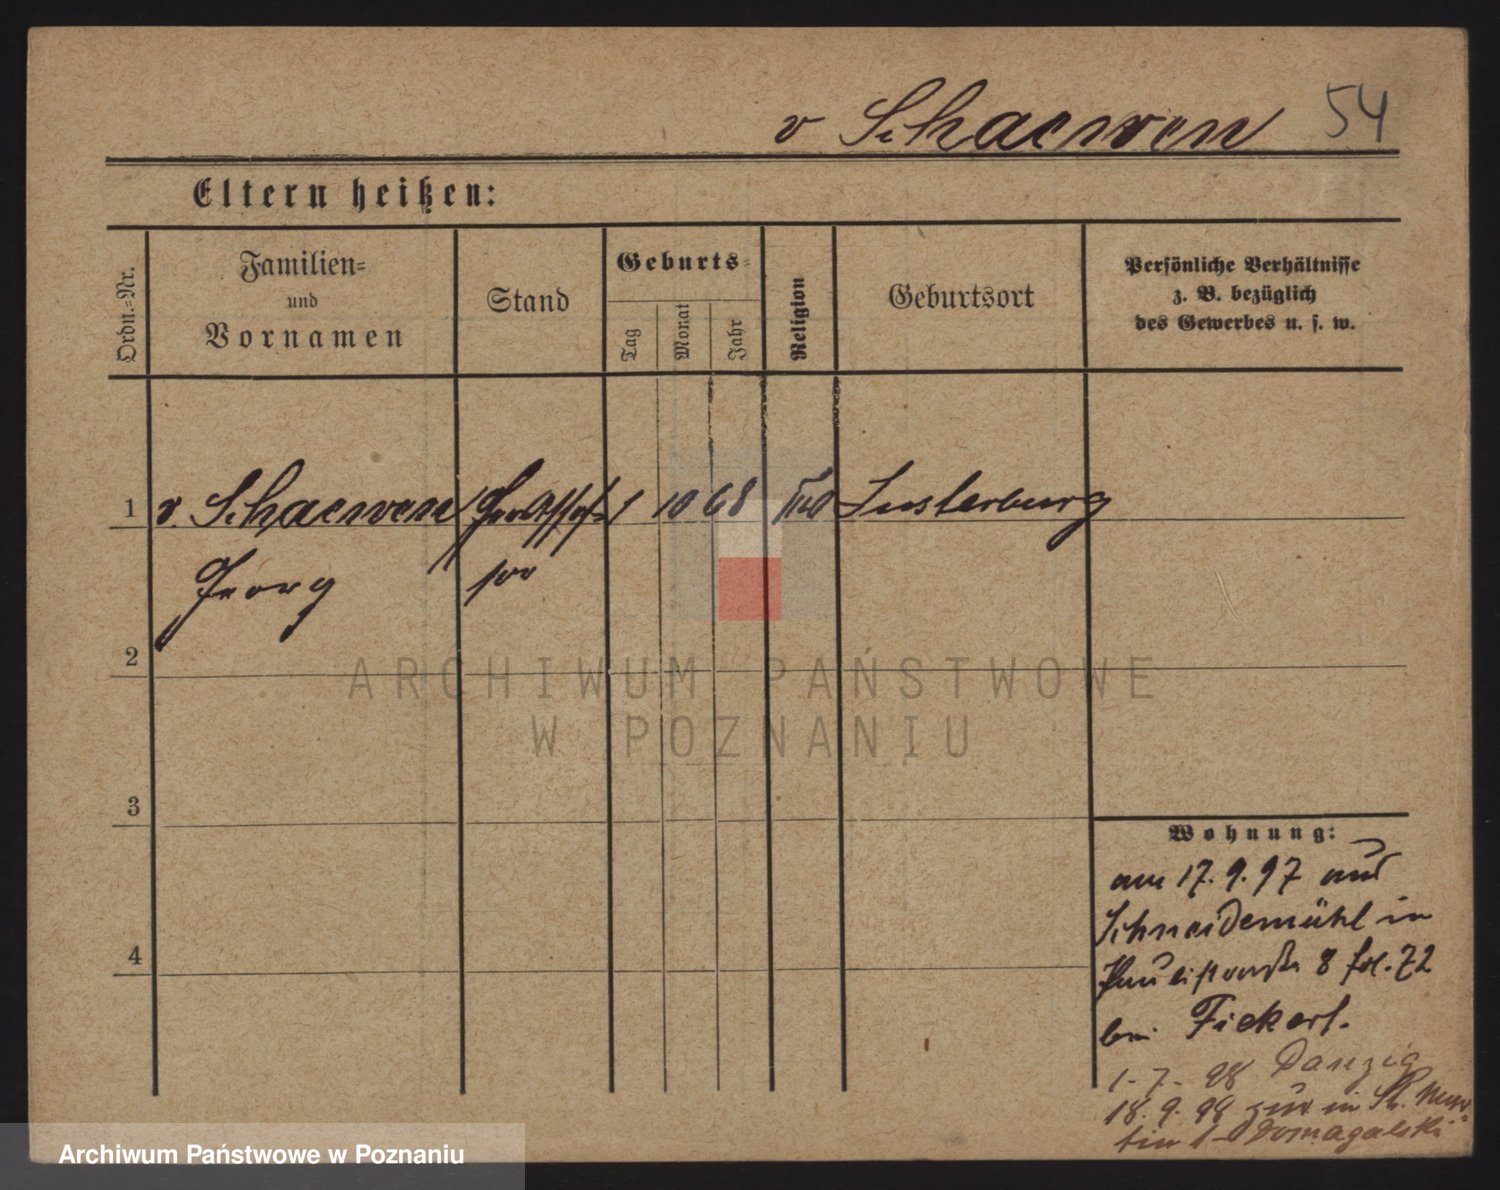 v Schaewen 54
Eltern heißen:
Ordn.=Nr.
Familien=
und
Vornamen
Stand
Geburts=
Tag
Monat
Jahr
Religion
Geburtsort
Persönliche Verhältnisse
z. B. bezüglich
des Gewerbes u. s. w.
1 v. Schaewen 1 10 68 Insterburg
Georg
sor
2
ARCHIWUM PAŃSTWOWE
W POZNANIU
3
4
Wohnung:
am 17. 9. 97 aus
Schneidemühl in
Paulikirchstr 8 fol. 72
bei Fickert.
1. 7. 98 Danzig
18. 9. 98 zur in St. Mar
tin 1 Domagalski
Archiwum Państwowe w Poznaniu